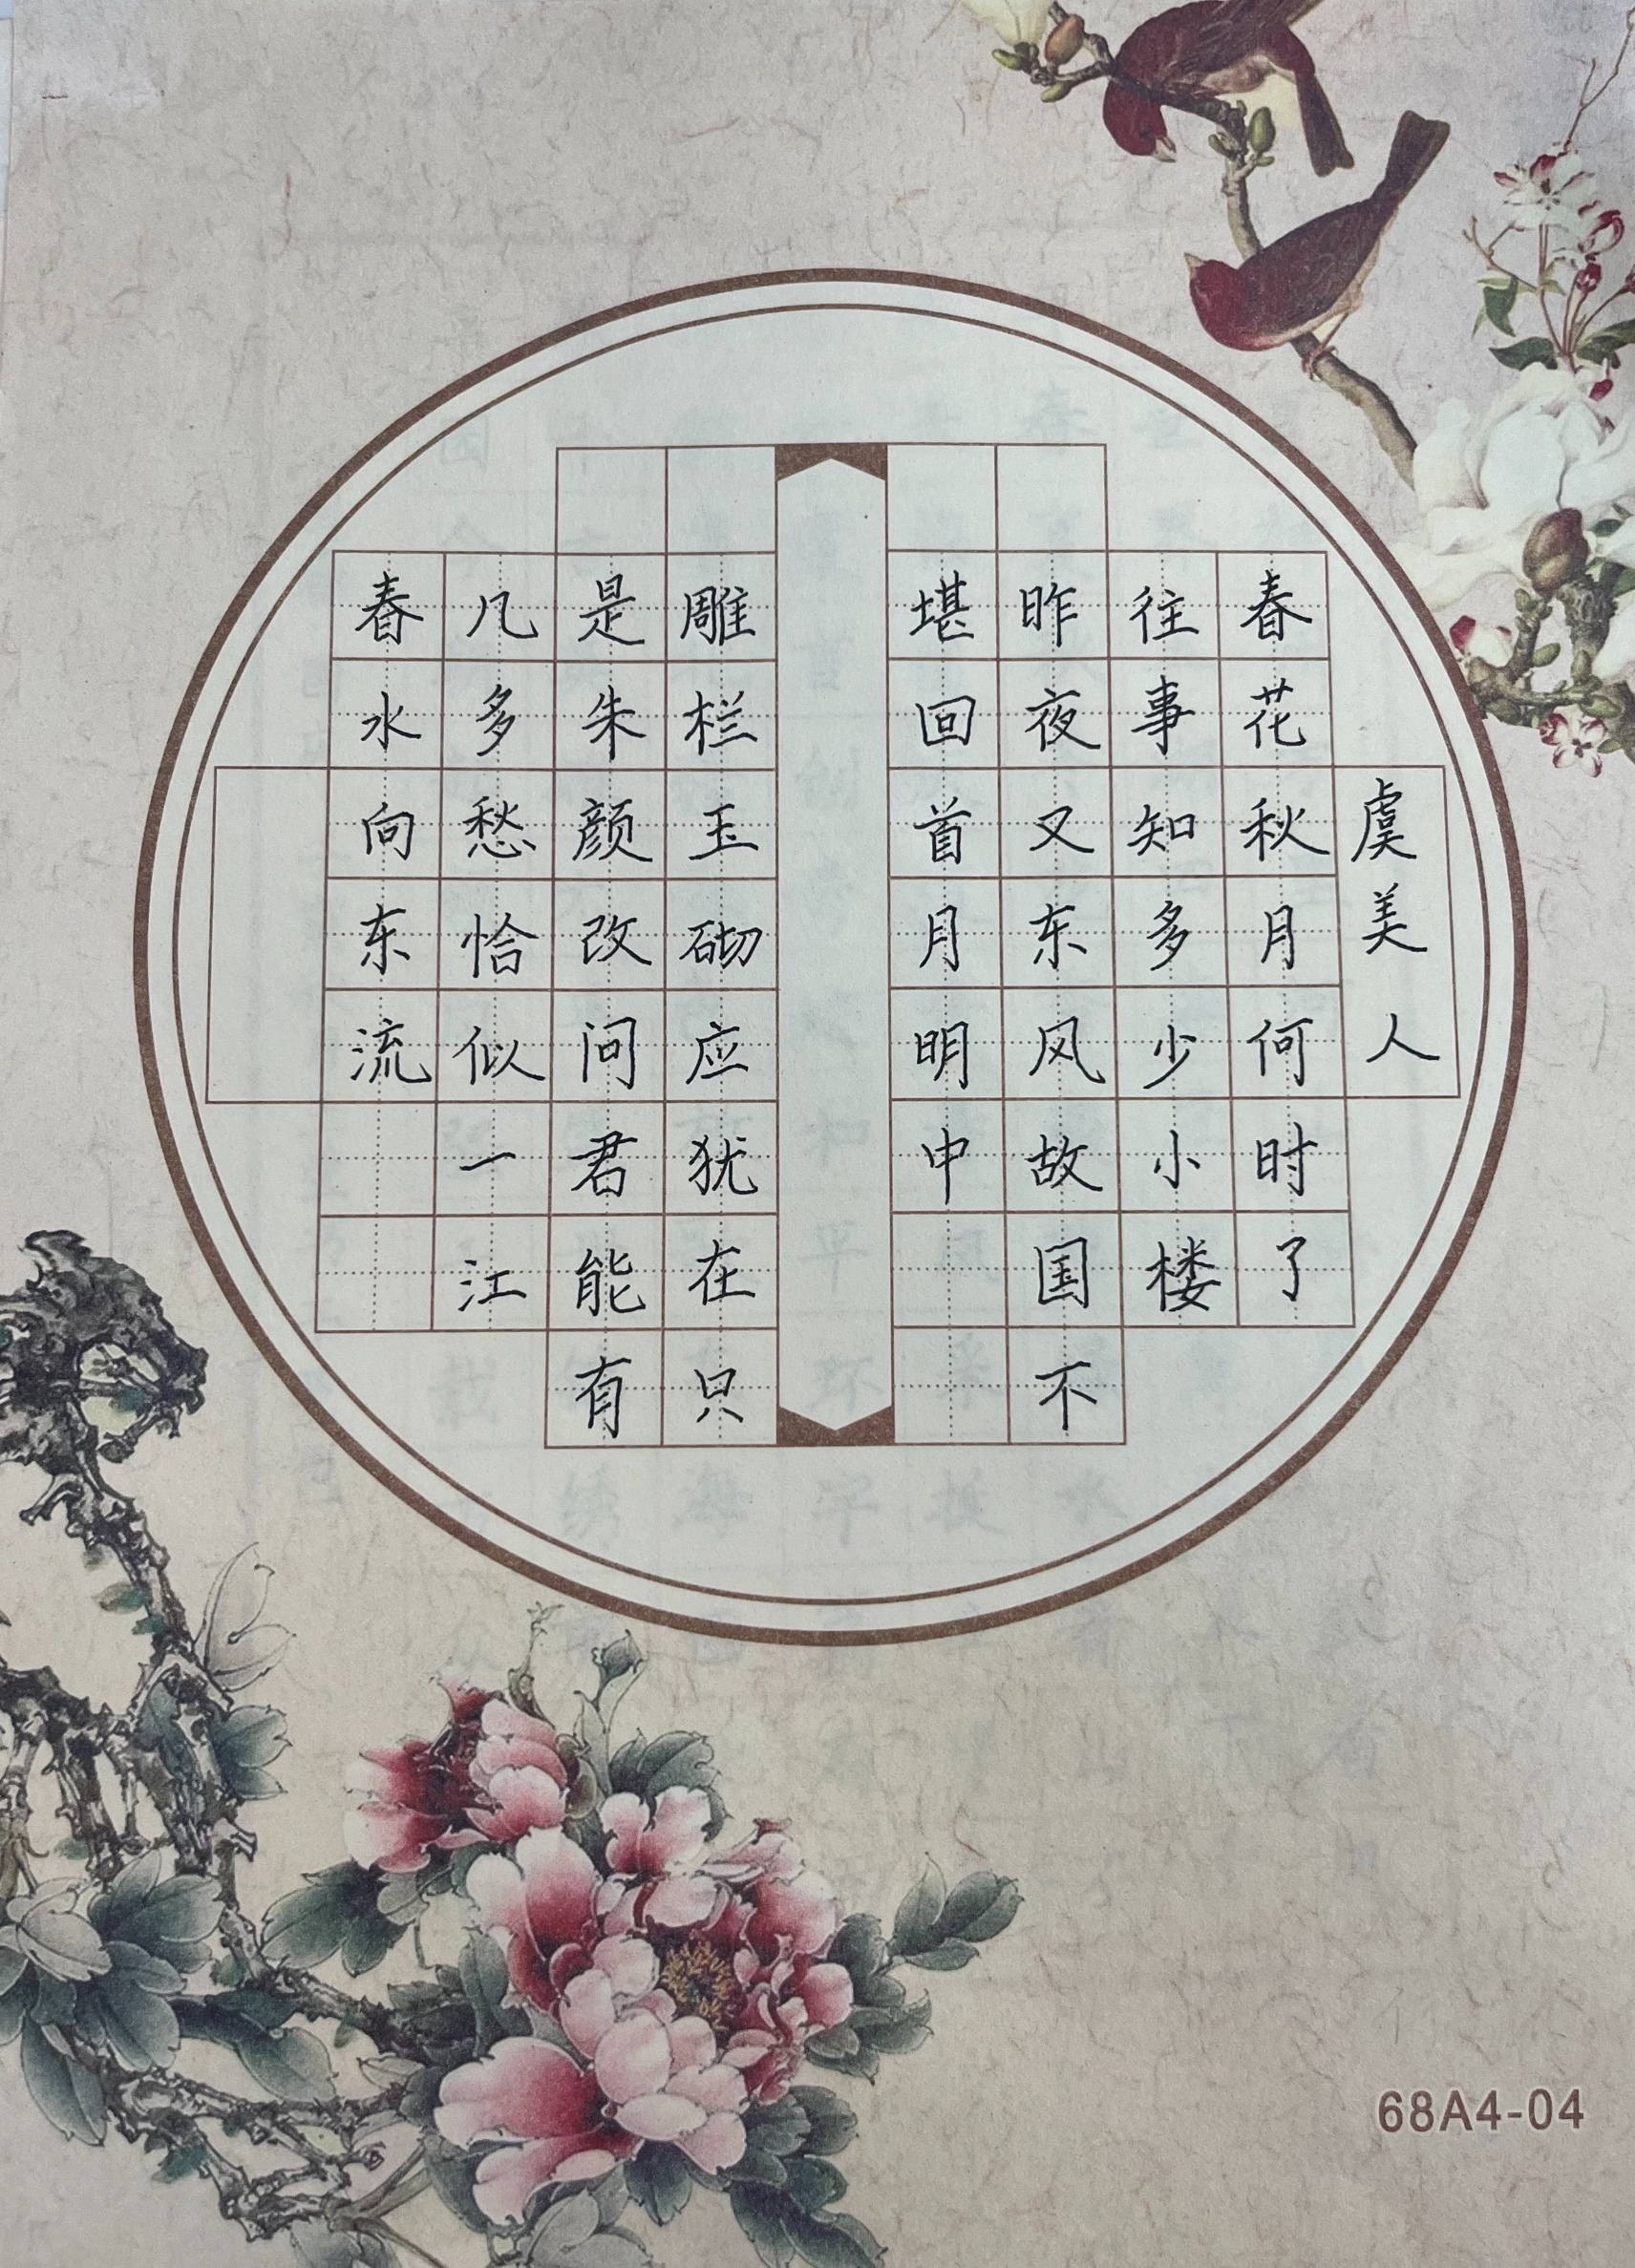 虞美人
春花秋月何时了
往事知多少小楼
昨夜又东风故国不
堪回首月明中
雕栏玉砌应犹在只
是朱颜改问君能有
几多愁恰似一江
春水向东流
68A4-04